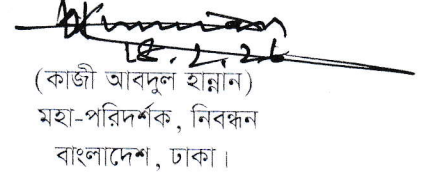 ১৫.২.২৬
(কাজী আবদুল হান্নান)
মহা-পরিদর্শক, নিবন্ধন
বাংলাদেশ, ঢাকা।